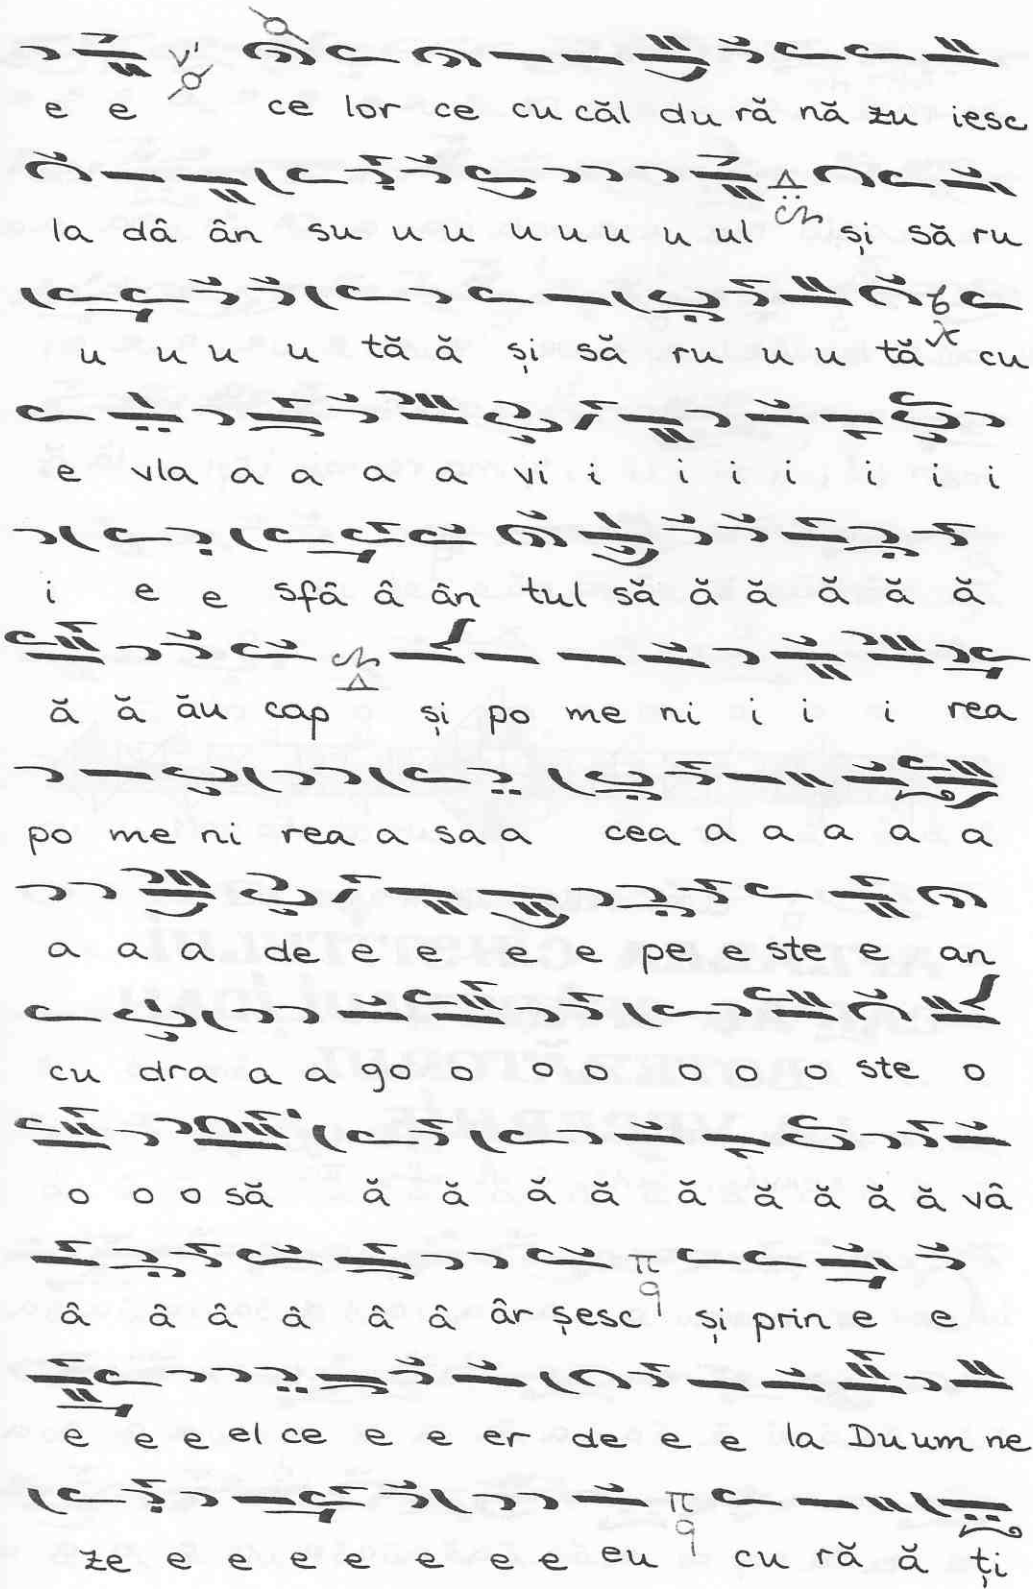 e e ce lor ce cu căl du ră nă zu iesc
la dâ ân su u u u u u u ul și să ru
u u u u tă ă și să ru u u tă cu
e vla a a a a vi i i i i i i i
i e e sfâ â ân tul să ă ă ă ă ă
ă ă ău cap și po me ni i i i rea
po me ni rea a sa a cea a a a a a
a a a de e e e e pe e ste e an
cu dra a a go o o o o o o ste o
o o o să ă ă ă ă ă ă ă ă ă vâ
â â â â â â âr șesc și prin e e
e e e el ce e e er de e e la Du um ne
ze e e e e e e e e eu cu ră ă ți